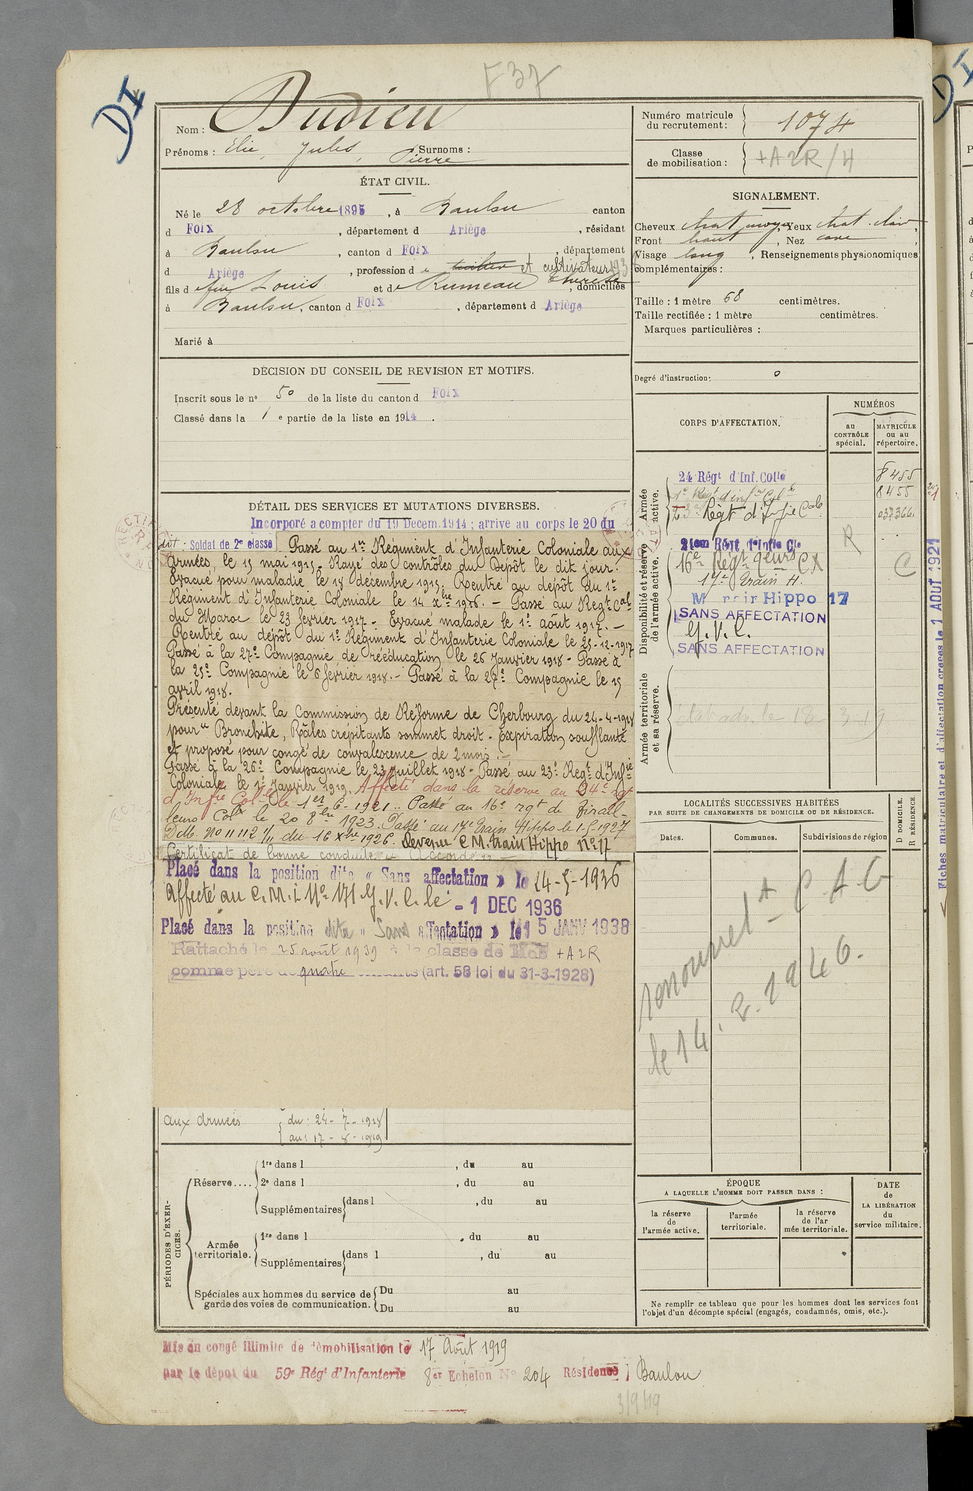 F 37
DI
Nom : Dudieu
Prénoms : Elie, Jules, Pierre Surnoms :
ÉTAT CIVIL.
Né le 28 octobre 1895, à Baulou canton
d Foix, département d Ariège, résidant
à Baulou, canton d Foix, département
d Ariège, profession de et cultivateur
fils de feu Louis et de Rumeau, domiciliés
à Baulou, canton d Foix, département d Ariège
Marié à
DÉCISION DU CONSEIL DE REVISION ET MOTIFS.
Inscrit sous le n° 50 de la liste du canton d Foix
Classé dans la 1 e partie de la liste en 1914.
DÉTAIL DES SERVICES ET MUTATIONS DIVERSES.
Incorporé à compter du 19 Decem. 1914 ; arrivé au corps le 20 du
dit ; Soldat de 2e classe Passé au 1er Régiment d'Infanterie Coloniale aux
armées, le 15 mai 1915. Rayé des contrôles du Dépôt le dit jour.
Evacué pour maladie le 14 décembre 1915. Rentré au dépôt du 1er
Régiment d'Infanterie Coloniale le 14 Xbre 1916. - Passé au Regt Cal
du Maroc le 23 février 1917 - Evacué malade le 1er août 1917. -
Rentré au dépôt du 1er Régiment d'Infanterie Coloniale le 25-12-1917
Passé à la 27e Compagnie de rééducation le 26 Janvier 1918 - Passé à
la 25e Compagnie le 6 février 1918. - Passé à la 27e Compagnie le 15
avril 1918.
Présenté devant la Commission de Réforme de Cherbourg du 24-4-1918
pour "Bronchite, Râles crépitants sommet droit. Expiration soufflante
et proposé pour congé de convalescence de 2 mois.
Passé à la 26e Compagnie le 23 juillet 1918 - Passé au 23e Regt d'Infie
Coloniale le 1er Janvier 1919. Affecté dans la réserve au 24e rgt
d'Infie Colle le 1er 6-1921. Passé au 16e rgt de Tirail-
leurs Colx le 20 8bre 1923. Passé au 17e Train Hippo le 1-5-1927
Dble No 11112 1/11 du 16 Xbre 1926. Devenu C.M. train Hippo No 17
Certificat de bonne conduite Accordé
Placé dans la position dite « Sans affectation » le 14-5-1936
Affecté au C.M.I No 171 G.V.C. le - 1 DEC 1936
Placé dans la position dite « Sans affectation » le 15 JANV 1938
Rattaché le 25 août 1939 à la classe de +A2R
comme père de quatre enfants (art. 58 loi du 31-3-1928)
aux armées { du : 24-7-1918
au : 17-8-1919
PÉRIODES D'EXERCICES.
Réserve.... 1re dans l , du au
2e dans l , du au
Supplémentaires dans l , du au
Armée territoriale. 1re dans l , du au
Supplémentaires dans l , du au
Spéciales aux hommes du service de garde des voies de communication. Du au
Du au
Mis en congé illimité de démobilisation le 17 Août 1919
par le dépôt du 59e Rég' d'Infanterie 8er Echelon No 204 Résidence : Baulou
3/9/19
Numéro matricule du recrutement : 1074
Classe de mobilisation : +A2R/4
SIGNALEMENT.
Cheveux chat moyen, Yeux chat. clair,
Front haut, Nez cave,
Visage long, Renseignements physionomiques
complémentaires :
Taille : 1 mètre 68 centimètres.
Taille rectifiée : 1 mètre centimètres.
Marques particulières :
Degré d'instruction : 0
CORPS D'AFFECTATION.
NUMÉROS
au CONTRÔLE spécial.
MATRICULE ou au répertoire.
Armée active.
24 Régt d'Inf. Colle 8455
1er Régt d'infie Cole 8455
23e Régt d'Infie Cole 037366
Disponibilité et réserve de l'armée active.
24em Régt d'Infie Cle R
16e Régt CX C
17e Train H.
Hippo 17
SANS AFFECTATION
G.V.C.
SANS AFFECTATION
Armée territoriale et sa réserve.
LOCALITÉS SUCCESSIVES HABITÉES
PAR SUITE DE CHANGEMENTS DE DOMICILE OU DE RÉSIDENCE.
Dates.
Communes.
Subdivisions de région
D DOMICILE. R RÉSIDENCE
le 14.2.1946.
ÉPOQUE
A LAQUELLE L'HOMME DOIT PASSER DANS :
la réserve de l'armée active.
l'armée territoriale.
la réserve de l'armée territoriale.
DATE de LA LIBÉRATION du service militaire.
Ne remplir ce tableau que pour les hommes dont les services font
l'objet d'un décompte spécial (engagés, condamnés, omis, etc.).
Fiches matriculaire et d'affectation créées le 1 AOUT 1921
DI